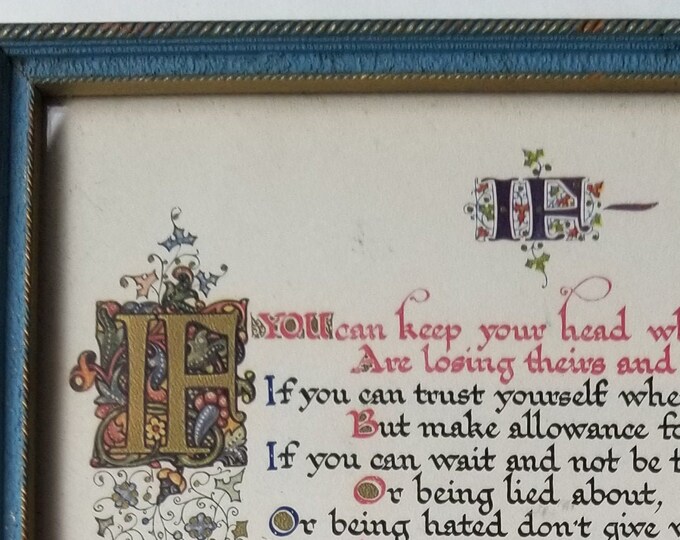 IF-
IF YOU can keep your head wh
Are losing theirs and
If you can trust yourself whe
But make allowance fo
If you can wait and not be t
Or being lied about,
Or being hated don't give w